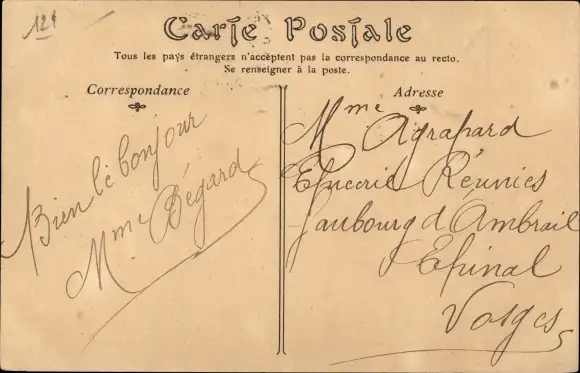 124
Carte Postale
Tous les pays étrangers n'acceptent pas la correspondance au recto.
Se renseigner à la poste.
Correspondance
Bien le bonjour
Mme Bégard
Adresse
Mme Agrapard
Epicerie Réunies
faubourg d'Ambrail
Epinal
Vosges